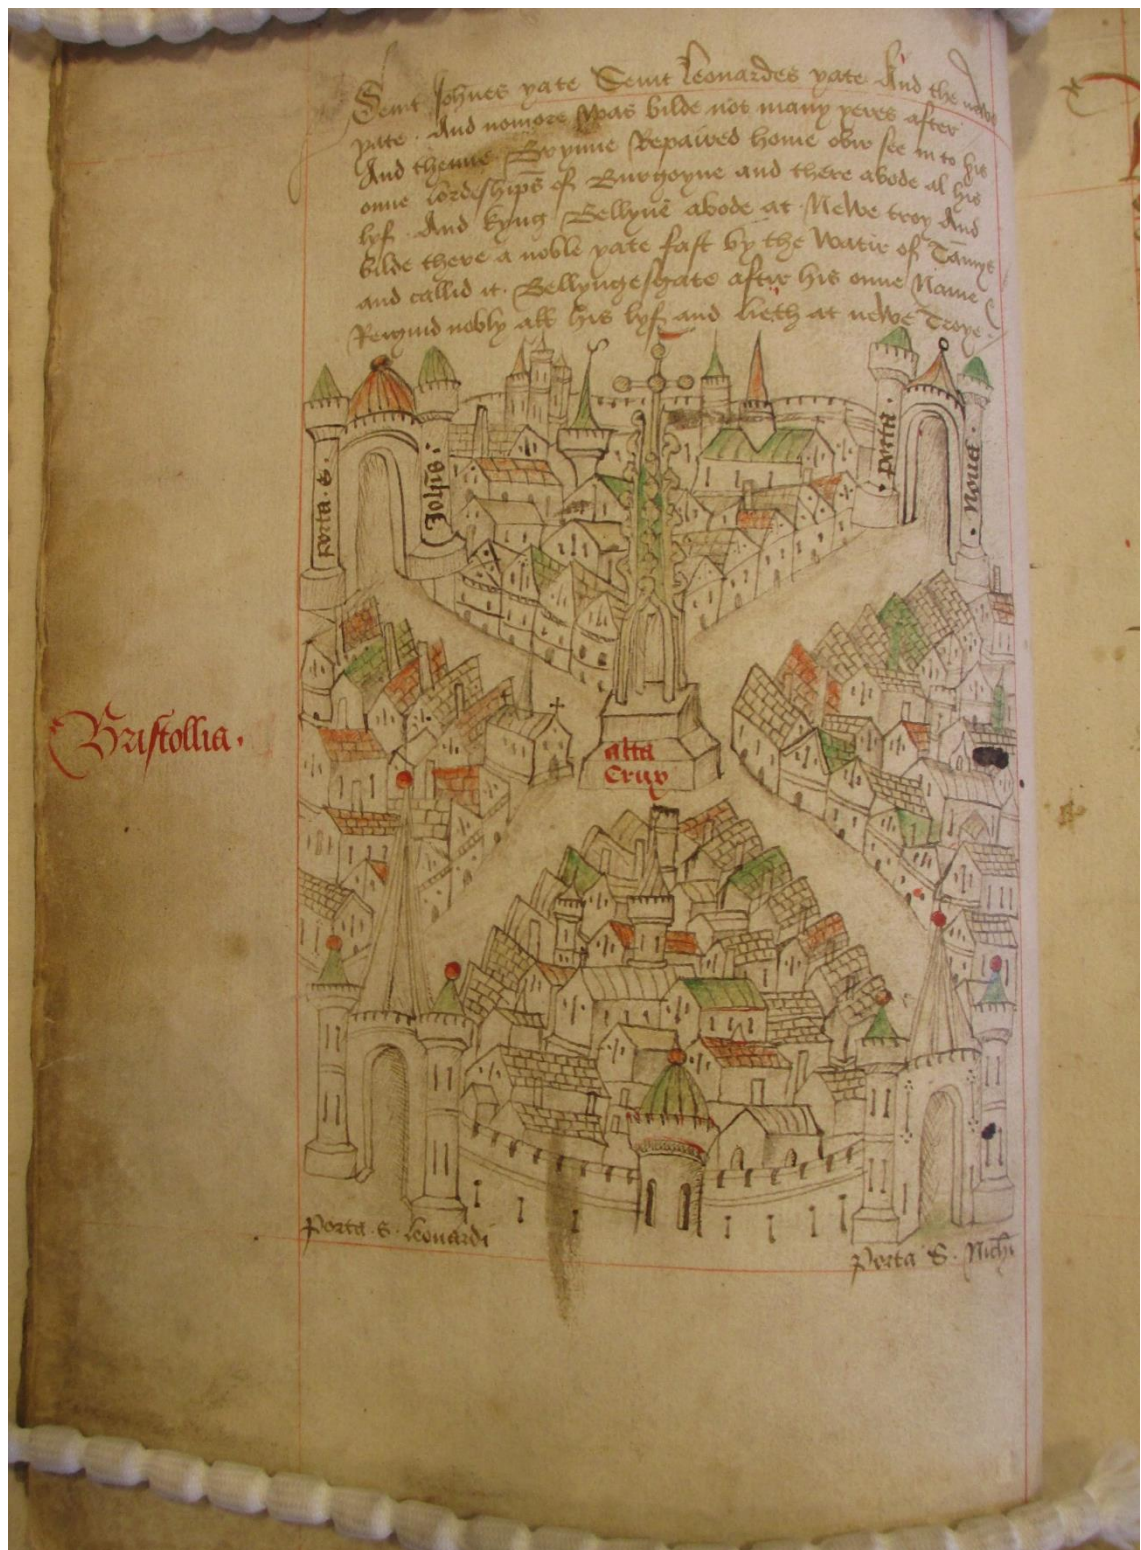 Seint Johnes yate Seint Leonardes yate And the newe
yate. And nomore was bilde not many yeres after
And thenne Brynne Repaired home ovir see in to his
onne lordeships of Burgoyne and there abode al his
lyf. And kyng Bellyne abode at Newe troy And
bilde there a noble yate fast by the Watir of Tamyse
and callid it. Bellyngesgate aftir his onne Name
Reigned nobly all his lyf and lieth at newe Troye.
porta. S.
Johis.
.porta.
.Noua.
Bristollia.
alta
Crux
Porta. S. Leonardi
Porta S. Nichi